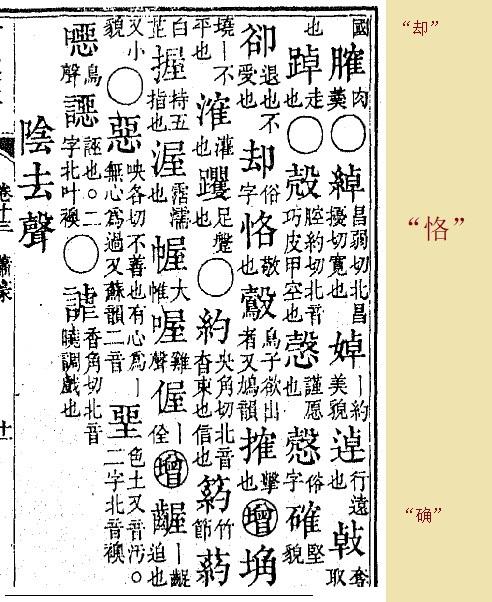 國 肉羹 ○ 綽 昌弱切北昌擾切寬也 婥 ｜約美貌 逴 行遠也 取
也 踔 走也 ○ 殼 腔約切北音巧皮甲空也 愨 謹愿也 慤 俗字 確 堅貌
卻 退也不受也 却 俗字 恪 敬也 鷇 鳥子欲出者又鳩韻 搉 擊也 增 埆
墝｜不平也 灌也 躩 足躩也 ○ 約 央角切北音杳束也信也 竹節 葯
白芷 握 持五指也 渥 霑濡也 幄 大帷 喔 雞聲 偓 ｜佺 增 齷 ｜齪迫也
又小貌 ○ 惡 映各切不善也有心爲｜無心爲過又蘇韻二音 堊 色土又音汚。二字北音襖
噁 鳥聲 誣也。二字北叶襖 ○ 謔 香角切北音曉調戲也
陰去聲
卷十三 蕭豪 十一
“却”
“恪”
“确”